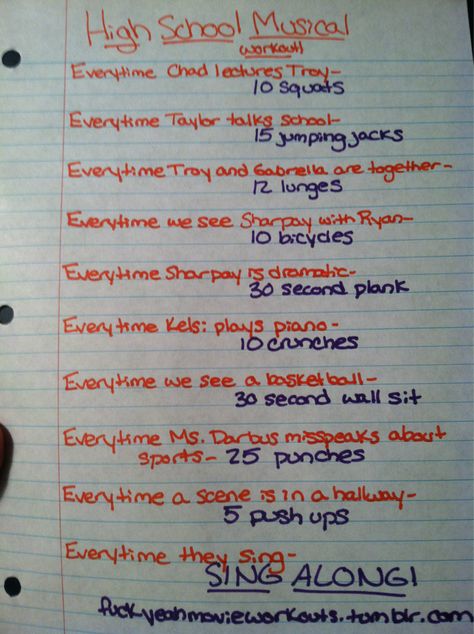 High School Musical
workout!
Everytime Chad lectures Troy-
10 squats
Everytime Taylor talks school-
15 jumping jacks
Everytime Troy and Gabriella are together-
12 lunges
Everytime we see Sharpay with Ryan-
10 bicycles
Everytime Sharpay is dramatic-
30 second plank
Everytime Kelsi plays piano-
10 crunches
Everytime we see a basketball-
30 second wall sit
Everytime Ms. Darbus misspeaks about
sports- 25 punches
Everytime a scene is in a hallway-
5 push ups
Everytime they sing-
SING ALONG!
fuckyeahmovieworkouts.tumblr.com